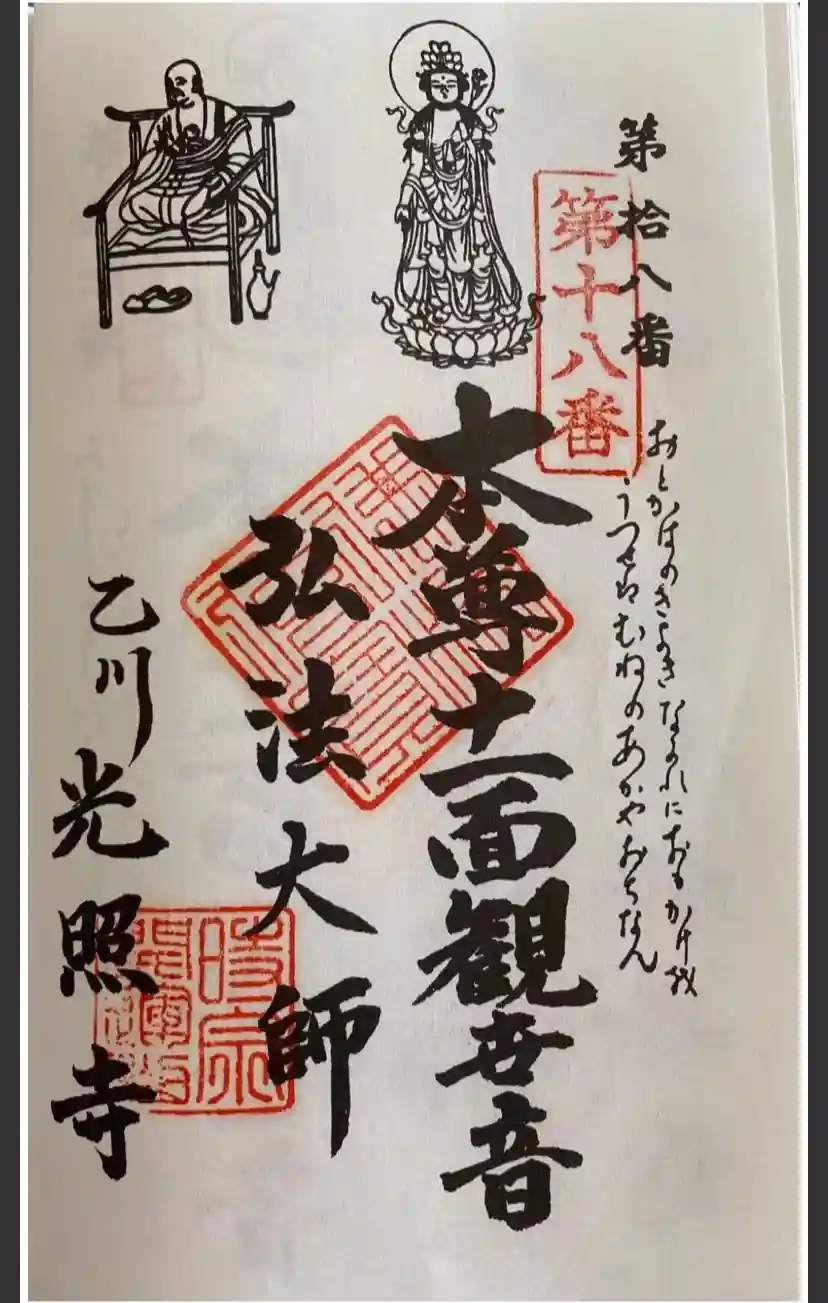 第拾八番
第十八番
おとかはのきよきなかれにおもかけ
うつせはむねのあかやおちなん
本尊十一面観世音
弘法大師
乙川光照寺
時宗